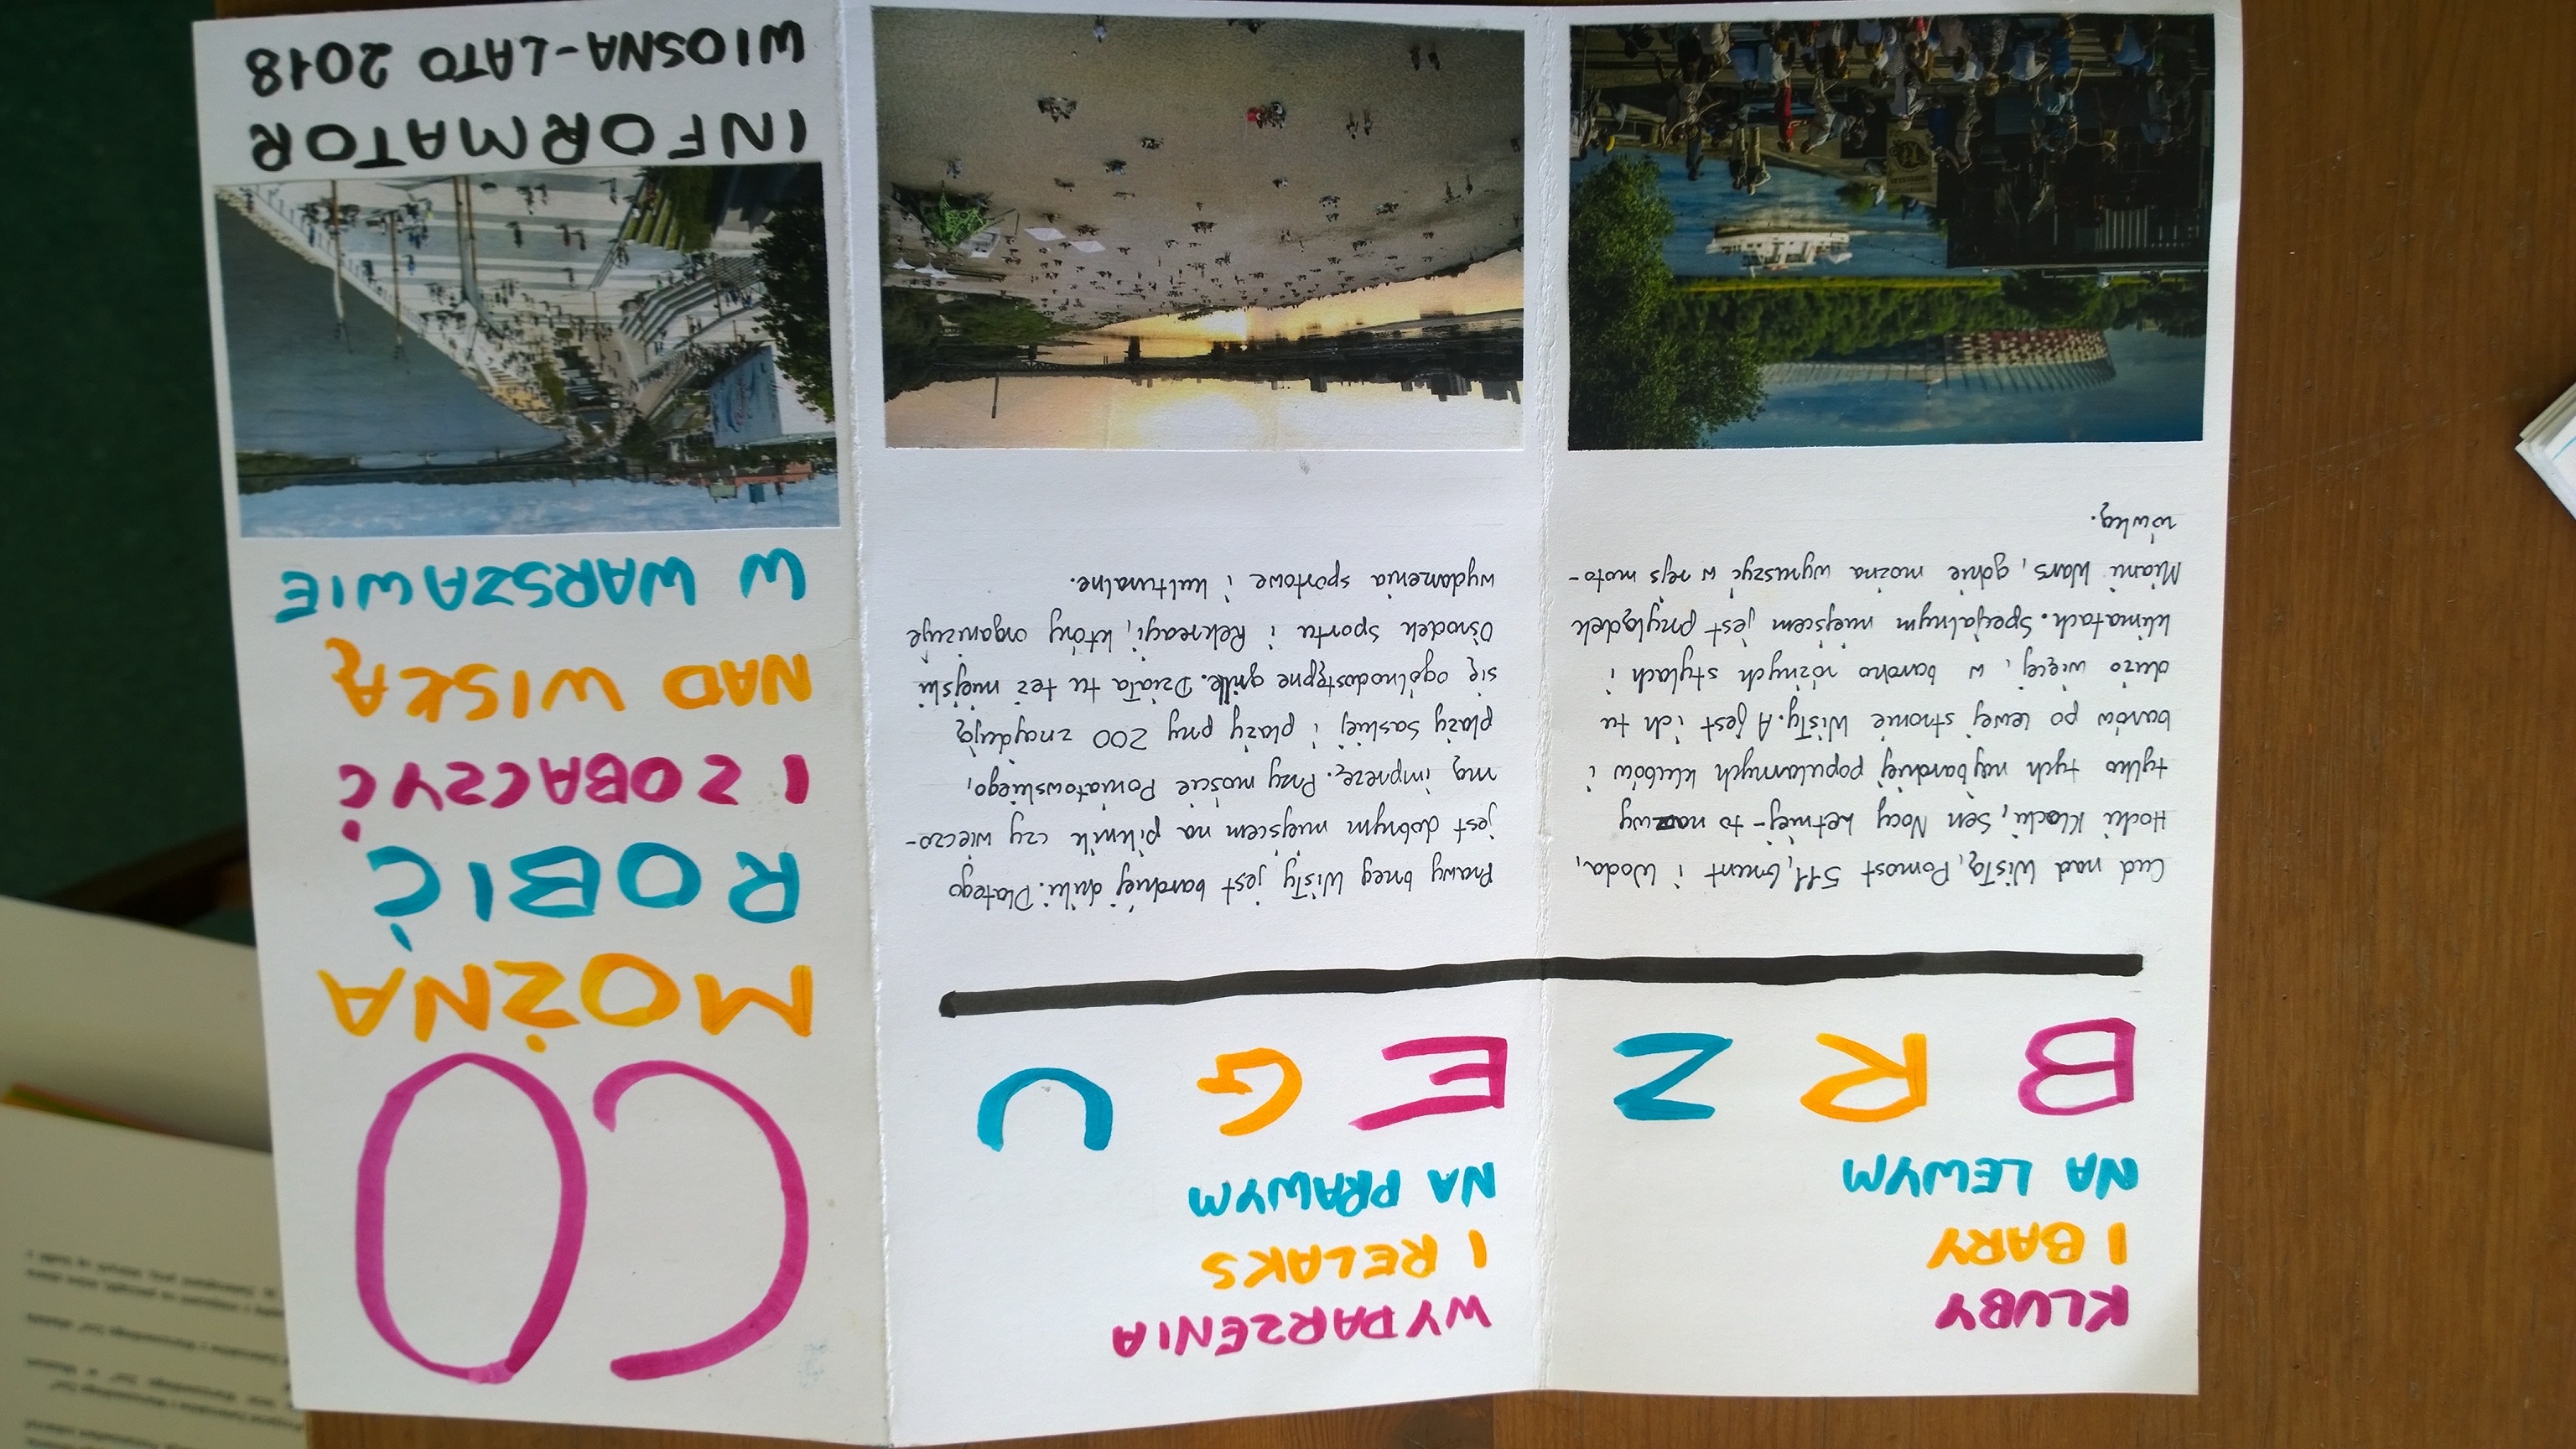 KLUBY
I BARY
NA LEWYM
WYDARZENIA
I RELAKS
NA PRAWYM
BRZEGU
Cud nad Wisłą, Pomost 511, Grunt i Woda,
Hocki Klocki, Sen Nocy Letniej - to nazwy
tylko tych najbardziej popularnych klubów i
barów po lewej stronie Wisły. A jest ich tu
dużo więcej, w bardzo różnych stylach i
klimatach. Specjalnym miejscem jest przylądek
Miami Wars, gdzie można wyruszyć w rejs moto-
rówką.
Prawy brzeg Wisły jest bardziej dziki. Dlatego
jest dobrym miejscem na piknik czy wieczo-
rną imprezę. Przy moście Poniatowskiego,
plaży Saskiej i plaży przy ZOO znajdują
się ogólnodostępne grille. Działa tu też miejski
Ośrodek Sportu i Rekreacji, który organizuje
wydarzenia sportowe i kulturalne.
CO
MOŻNA
ROBIĆ
I ZOBACZYĆ
NAD WISŁĄ
W WARSZAWIE
INFORMATOR
WIOSNA-LATO 2018